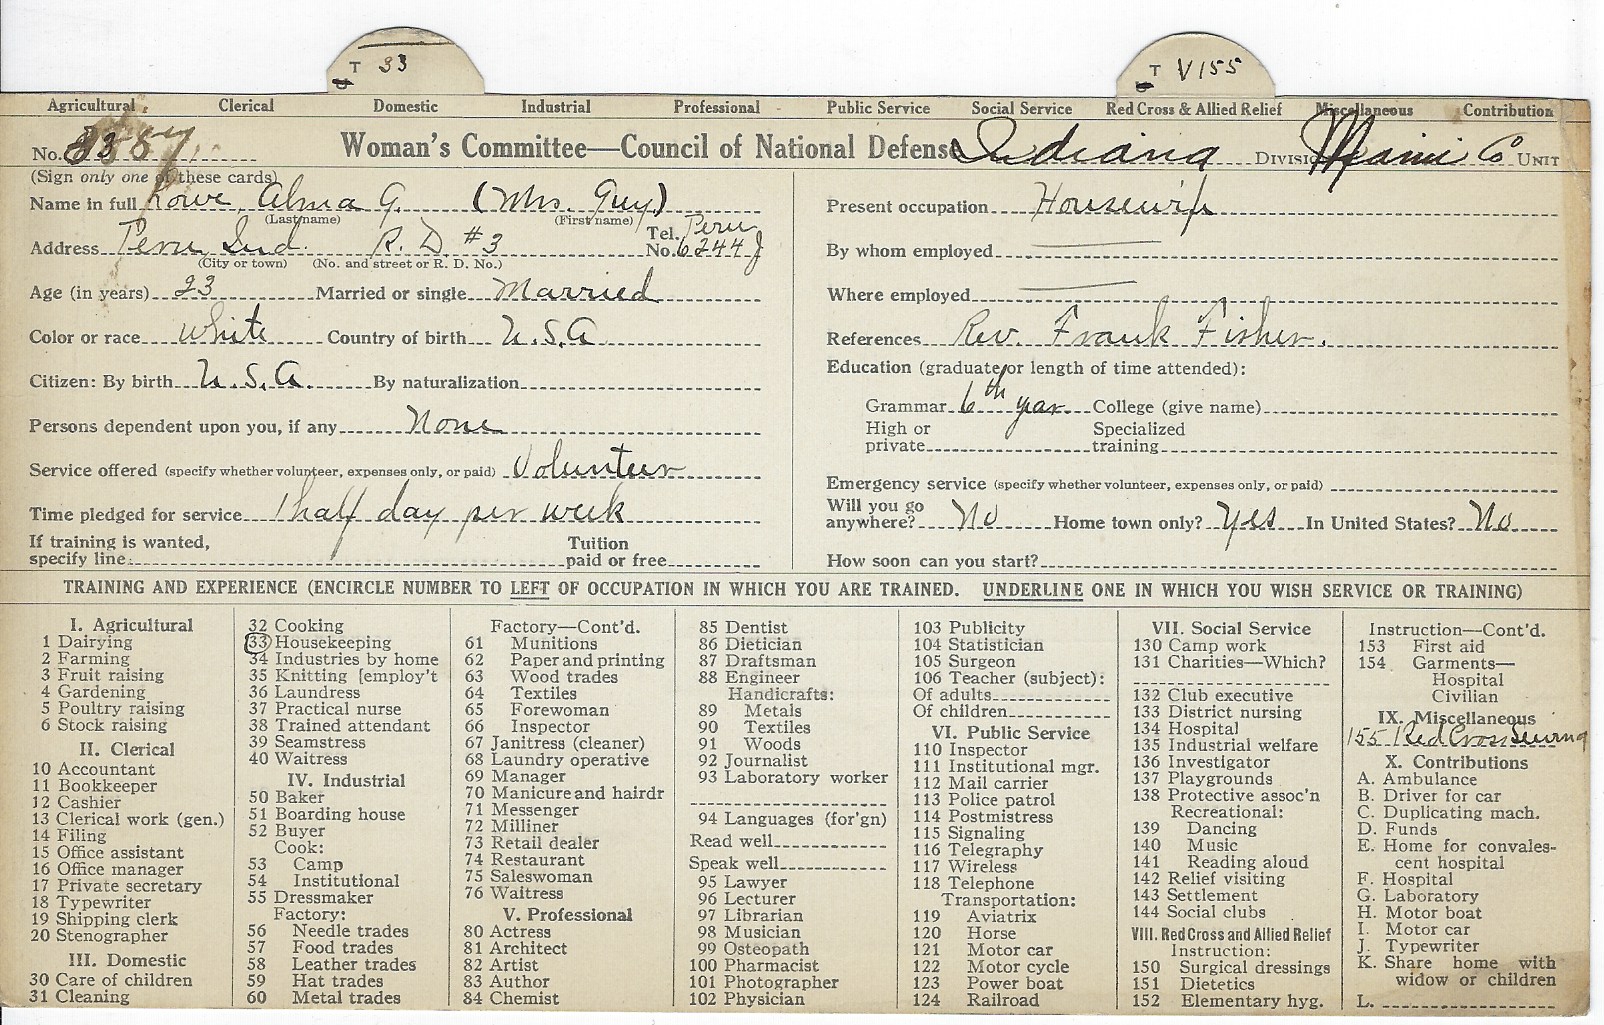 T 33
T V155
Agricultural Clerical Domestic Industrial Professional Public Service Social Service Red Cross & Allied Relief Miscellaneous Contribution
No. Woman's Committee—Council of National Defense Indiana DIVISION Miami Co UNIT
(Sign only one of these cards)
Name in full Rowe Alma G. (Mrs. Guy)
(Last name) (First name)
Address Peru Ind. R. D. #3 Tel. No. Peru 6244J
(City or town) (No. and street or R. D. No.)
Age (in years) 23 Married or single Married
Color or race white Country of birth U.S.A
Citizen: By birth U.S.A. By naturalization
Persons dependent upon you, if any None
Service offered (specify whether volunteer, expenses only, or paid) Volunteer
Time pledged for service 1 half day per week
If training is wanted, specify line: Tuition paid or free
Present occupation Housewife
By whom employed
Where employed
References Rev. Frank Fisher.
Education (graduate or length of time attended):
Grammar 6th year College (give name)
High or private Specialized training
Emergency service (specify whether volunteer, expenses only, or paid)
Will you go anywhere? No Home town only? Yes In United States? No
How soon can you start?
TRAINING AND EXPERIENCE (ENCIRCLE NUMBER TO LEFT OF OCCUPATION IN WHICH YOU ARE TRAINED. UNDERLINE ONE IN WHICH YOU WISH SERVICE OR TRAINING)
I. Agricultural
1 Dairying
2 Farming
3 Fruit raising
4 Gardening
5 Poultry raising
6 Stock raising
II. Clerical
10 Accountant
11 Bookkeeper
12 Cashier
13 Clerical work (gen.)
14 Filing
15 Office assistant
16 Office manager
17 Private secretary
18 Typewriter
19 Shipping clerk
20 Stenographer
III. Domestic
30 Care of children
31 Cleaning
32 Cooking
33 Housekeeping
34 Industries by home
35 Knitting [employ't
36 Laundress
37 Practical nurse
38 Trained attendant
39 Seamstress
40 Waitress
IV. Industrial
50 Baker
51 Boarding house
52 Buyer
Cook:
53 Camp
54 Institutional
55 Dressmaker
Factory:
56 Needle trades
57 Food trades
58 Leather trades
59 Hat trades
60 Metal trades
Factory—Cont'd.
61 Munitions
62 Paper and printing
63 Wood trades
64 Textiles
65 Forewoman
66 Inspector
67 Janitress (cleaner)
68 Laundry operative
69 Manager
70 Manicure and hairdr
71 Messenger
72 Milliner
73 Retail dealer
74 Restaurant
75 Saleswoman
76 Waitress
V. Professional
80 Actress
81 Architect
82 Artist
83 Author
84 Chemist
85 Dentist
86 Dietician
87 Draftsman
88 Engineer
Handicrafts:
89 Metals
90 Textiles
91 Woods
92 Journalist
93 Laboratory worker
94 Languages (for'gn)
Read well
Speak well
95 Lawyer
96 Lecturer
97 Librarian
98 Musician
99 Osteopath
100 Pharmacist
101 Photographer
102 Physician
103 Publicity
104 Statistician
105 Surgeon
106 Teacher (subject):
Of adults
Of children
VI. Public Service
110 Inspector
111 Institutional mgr.
112 Mail carrier
113 Police patrol
114 Postmistress
115 Signaling
116 Telegraphy
117 Wireless
118 Telephone
Transportation:
119 Aviatrix
120 Horse
121 Motor car
122 Motor cycle
123 Power boat
124 Railroad
VII. Social Service
130 Camp work
131 Charities—Which?
132 Club executive
133 District nursing
134 Hospital
135 Industrial welfare
136 Investigator
137 Playgrounds
138 Protective assoc'n
Recreational:
139 Dancing
140 Music
141 Reading aloud
142 Relief visiting
143 Settlement
144 Social clubs
VIII. Red Cross and Allied Relief
Instruction:
150 Surgical dressings
151 Dietetics
152 Elementary hyg.
Instruction—Cont'd.
153 First aid
154 Garments—
Hospital
Civilian
IX. Miscellaneous
155 Red Cross Sewing
X. Contributions
A. Ambulance
B. Driver for car
C. Duplicating mach.
D. Funds
E. Home for convales-
cent hospital
F. Hospital
G. Laboratory
H. Motor boat
I. Motor car
J. Typewriter
K. Share home with
widow or children
L.